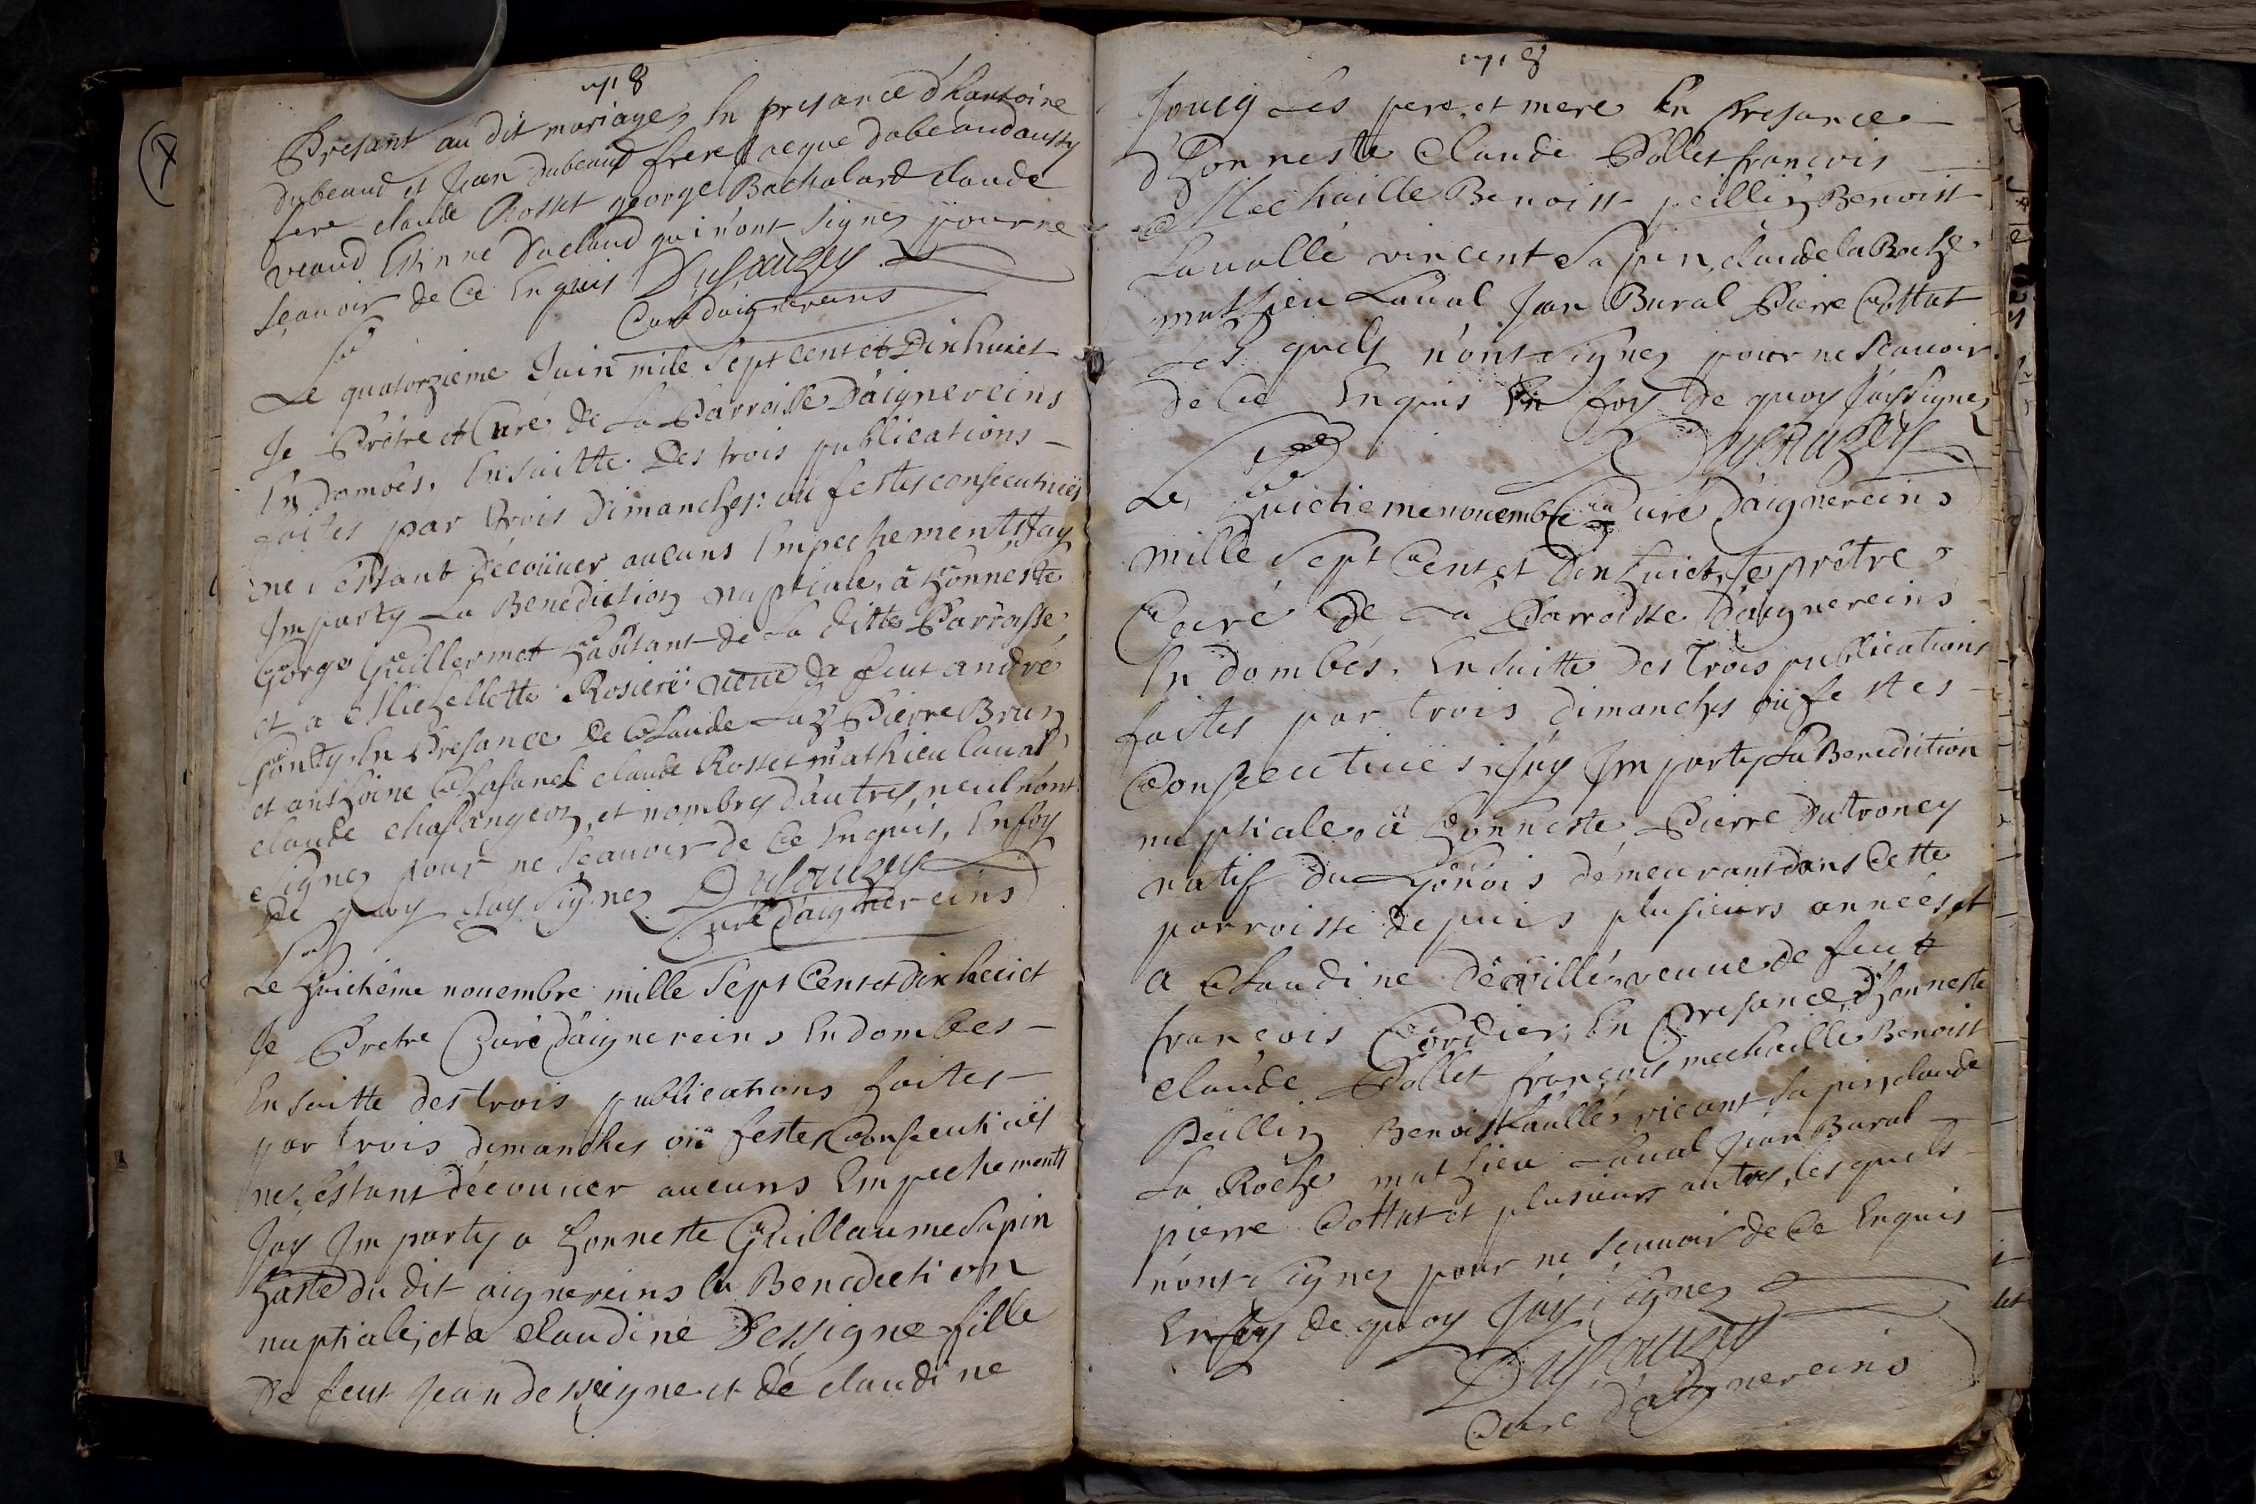 1718
Présant au dit mariage, En presance d'Hantoine
dubeaud et Jean dubeaud frere Jacque dubeaud aussy
frere claude Rosset george Bachalard claude
veaud Estinne Duclaud qui n'ont signez pour ne
sçauoir de Ce Enquis Dusauzey
Curé daignereins
Le quatorzieme Juin mile Sept Cent et Dix huict
Je Prêtre et Curé de La Parroisse D'aignereins
En dombes, Ensuitte Des trois publications
faites par trois Dimanches: ou festes consecutiues
ne s'estant découuer aucuns Empechements J'ay
Imparty La Benediction nuptiale, à honneste
Gorge Guillermet habitant de La ditte Parroisse
et a Michellette Rosiere veuue de feut andré
En Presance De Claude Pierre Brun
et anthoine Chasanel claude Rosset mathieu Laual
claude chasangeon, et nombres d'autres, neul n'ont
signez pour ne sçauoir de Ce Enquis, En foy
De quoy J'ay signez Dusauzey
Curé d'aignereins
Le huictiême nouembre mille Sept Cent et Dix heuict
Je Pretre Curé d'aignereins En dombes
Ensuitte des trois publications faites
par trois dimanches oü festes Consecutiues
ne s'estant découuer aucuns Empechements
J'ay Imparty a honneste Guillaume Sapin
haste du dit aignereins la Benediction
nuptiale, et a claudine Dessigne fille
De feut Jean desseigne et dé claudine
1718
Joucy Les pere, et mere En Presance
d'honneste Claude Pollet françois
Mechaille Benoist peillin Benoist
Lauallé vincent Sapin, claude la Roche
mathieu Laual Jean Bural Pierre Cottat
Les quels n'ont signez pour ne sçauoir
de Ce Enquis En foy de quoy J'ay signez
Dusauzey
Le, huictieme nouembre Curé D'aignereins
mille Sept Cent et Dix huict, Je prêtre
Curé De La Parroisse D'aignereins
En dombés, Ensuitte Des trois publications
faites par trois dimanches oü festes
Consecutiües, J'ay Imparty La Benediction
nuptiale, a honneste Pierre Dutroncy
natif du Lÿonois démeurant dans Cette
parroisse depuis plusieurs années, et
a Claudine Déuillé, veuue de feut
françois Cordier, En Presance, d'honneste
claude Pollet françois mechaille Benoist
Peillin Benoist Laullé, vicant Sapin, claude
La Roche mathieu Laual Jean Bural
pierre Cottat et plusieurs autres, les quels
n'ont signez pour ne sçauoir de Ce Enquis
En foy de quoy J'ay signez
Dusauzey
Curé d'aignereins